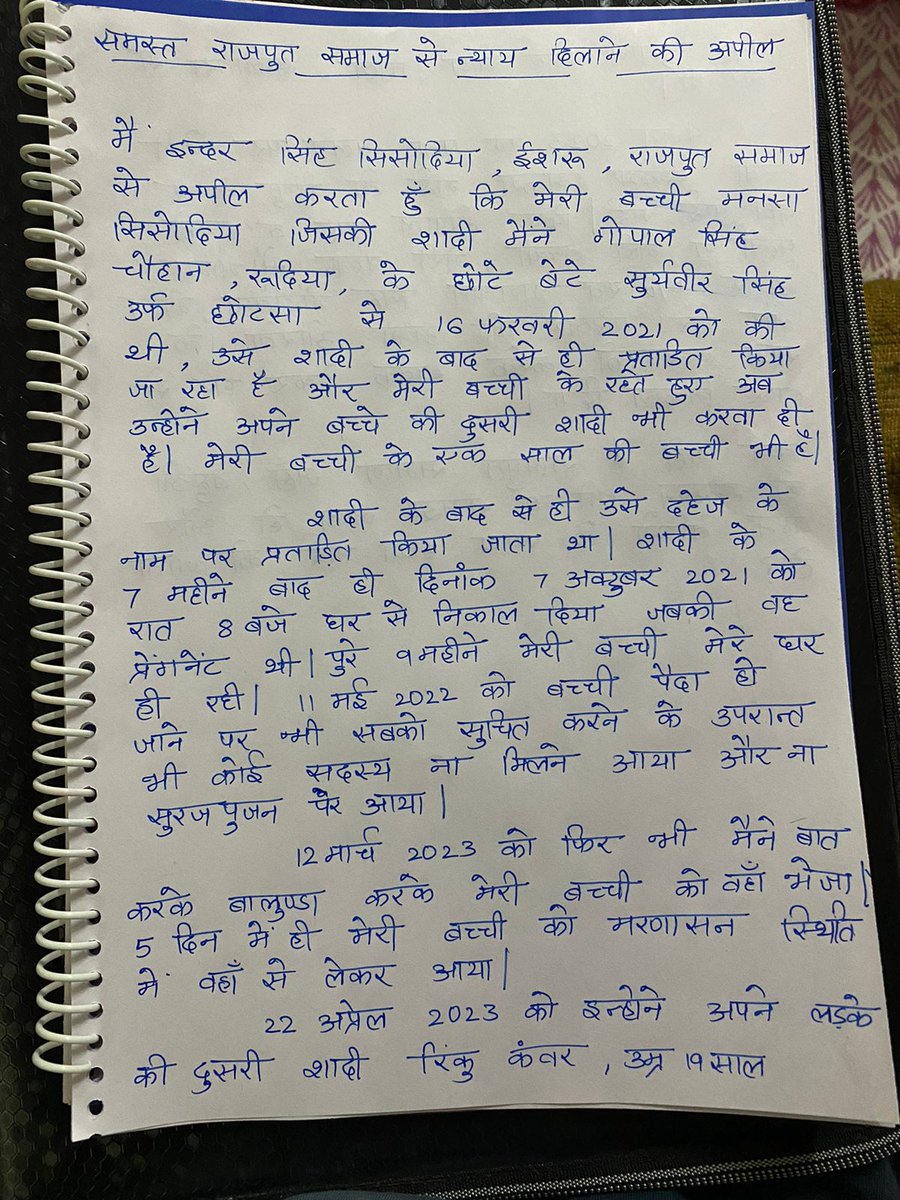 समस्त राजपुत समाज से न्याय दिलाने की अपील
मैं इन्दर सिंह सिसोदिया , ईशरू , राजपुत समाज
से अपील करता हुँ कि मेरी बच्ची मनसा
सिसोदिया जिसकी शादी मैंने गोपाल सिंह
चौहान , रूदिया , के छोटे बेटे सुर्यवीर सिंह
उर्फ छोटसा से 16 फरवरी 2021 को की
थी , उसे शादी के बाद से ही प्रताडित किया
जा रहा है और मेरी बच्ची के रहते हुए अब
उन्होने अपने बच्चे की दुसरी शादी भी करता ही
है। मेरी बच्ची के एक साल की बच्ची भी है।
शादी के बाद से ही उसे दहेज के
नाम पर प्रताड़ित किया जाता था। शादी के
7 महीने बाद ही दिनांक 7 अक्टुबर 2021 को
रात 8 बजे घर से निकाल दिया जबकी वह
प्रेंगनेंट थी। पुरे 9 महीने मेरी बच्ची मेरे घर
ही रही। 11 मई 2022 को बच्ची पैदा हो
जाने पर भी सबको सुचित करने के उपरान्त
भी कोई सदस्य ना मिलने आया और ना
सुरज पुजन पेर आया।
12 मार्च 2023 को फिर भी मैने बात
करके बालुण्डा करके मेरी बच्ची को वहाँ भेजा।
5 दिन में ही मेरी बच्ची को मरणासन स्थिति
में वहाँ से लेकर आया।
22 अप्रेल 2023 को इन्होने अपने लड़के
की दुसरी शादी रिंकु कंवर , उम्र 19 साल